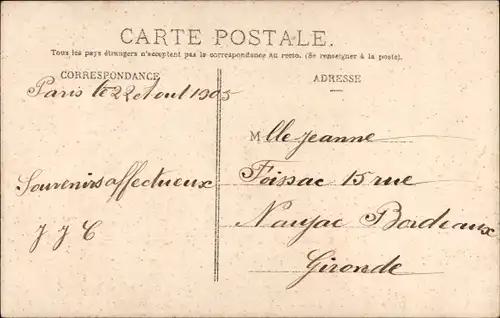 CARTE POSTALE.
Tous les pays étrangers n'acceptent pas la correspondance au recto. (Se renseigner à la poste).
CORRESPONDANCE
ADRESSE
Paris le 22 Aout 1905
Souvenirs affectueux
J J C
Mlle Jeanne
Foissac 15 rue
Naujac Bordeaux
Gironde